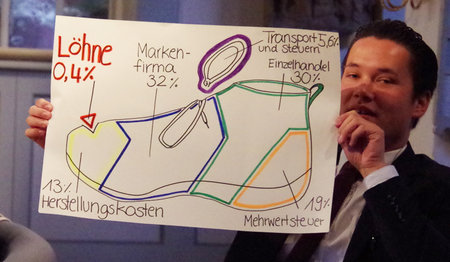 Löhne
0,4%
Marken-
firma
32%
Transport 5,6%
und Steuern
Einzelhandel
30%
13%
Herstellungskosten
19%
Mehrwertsteuer